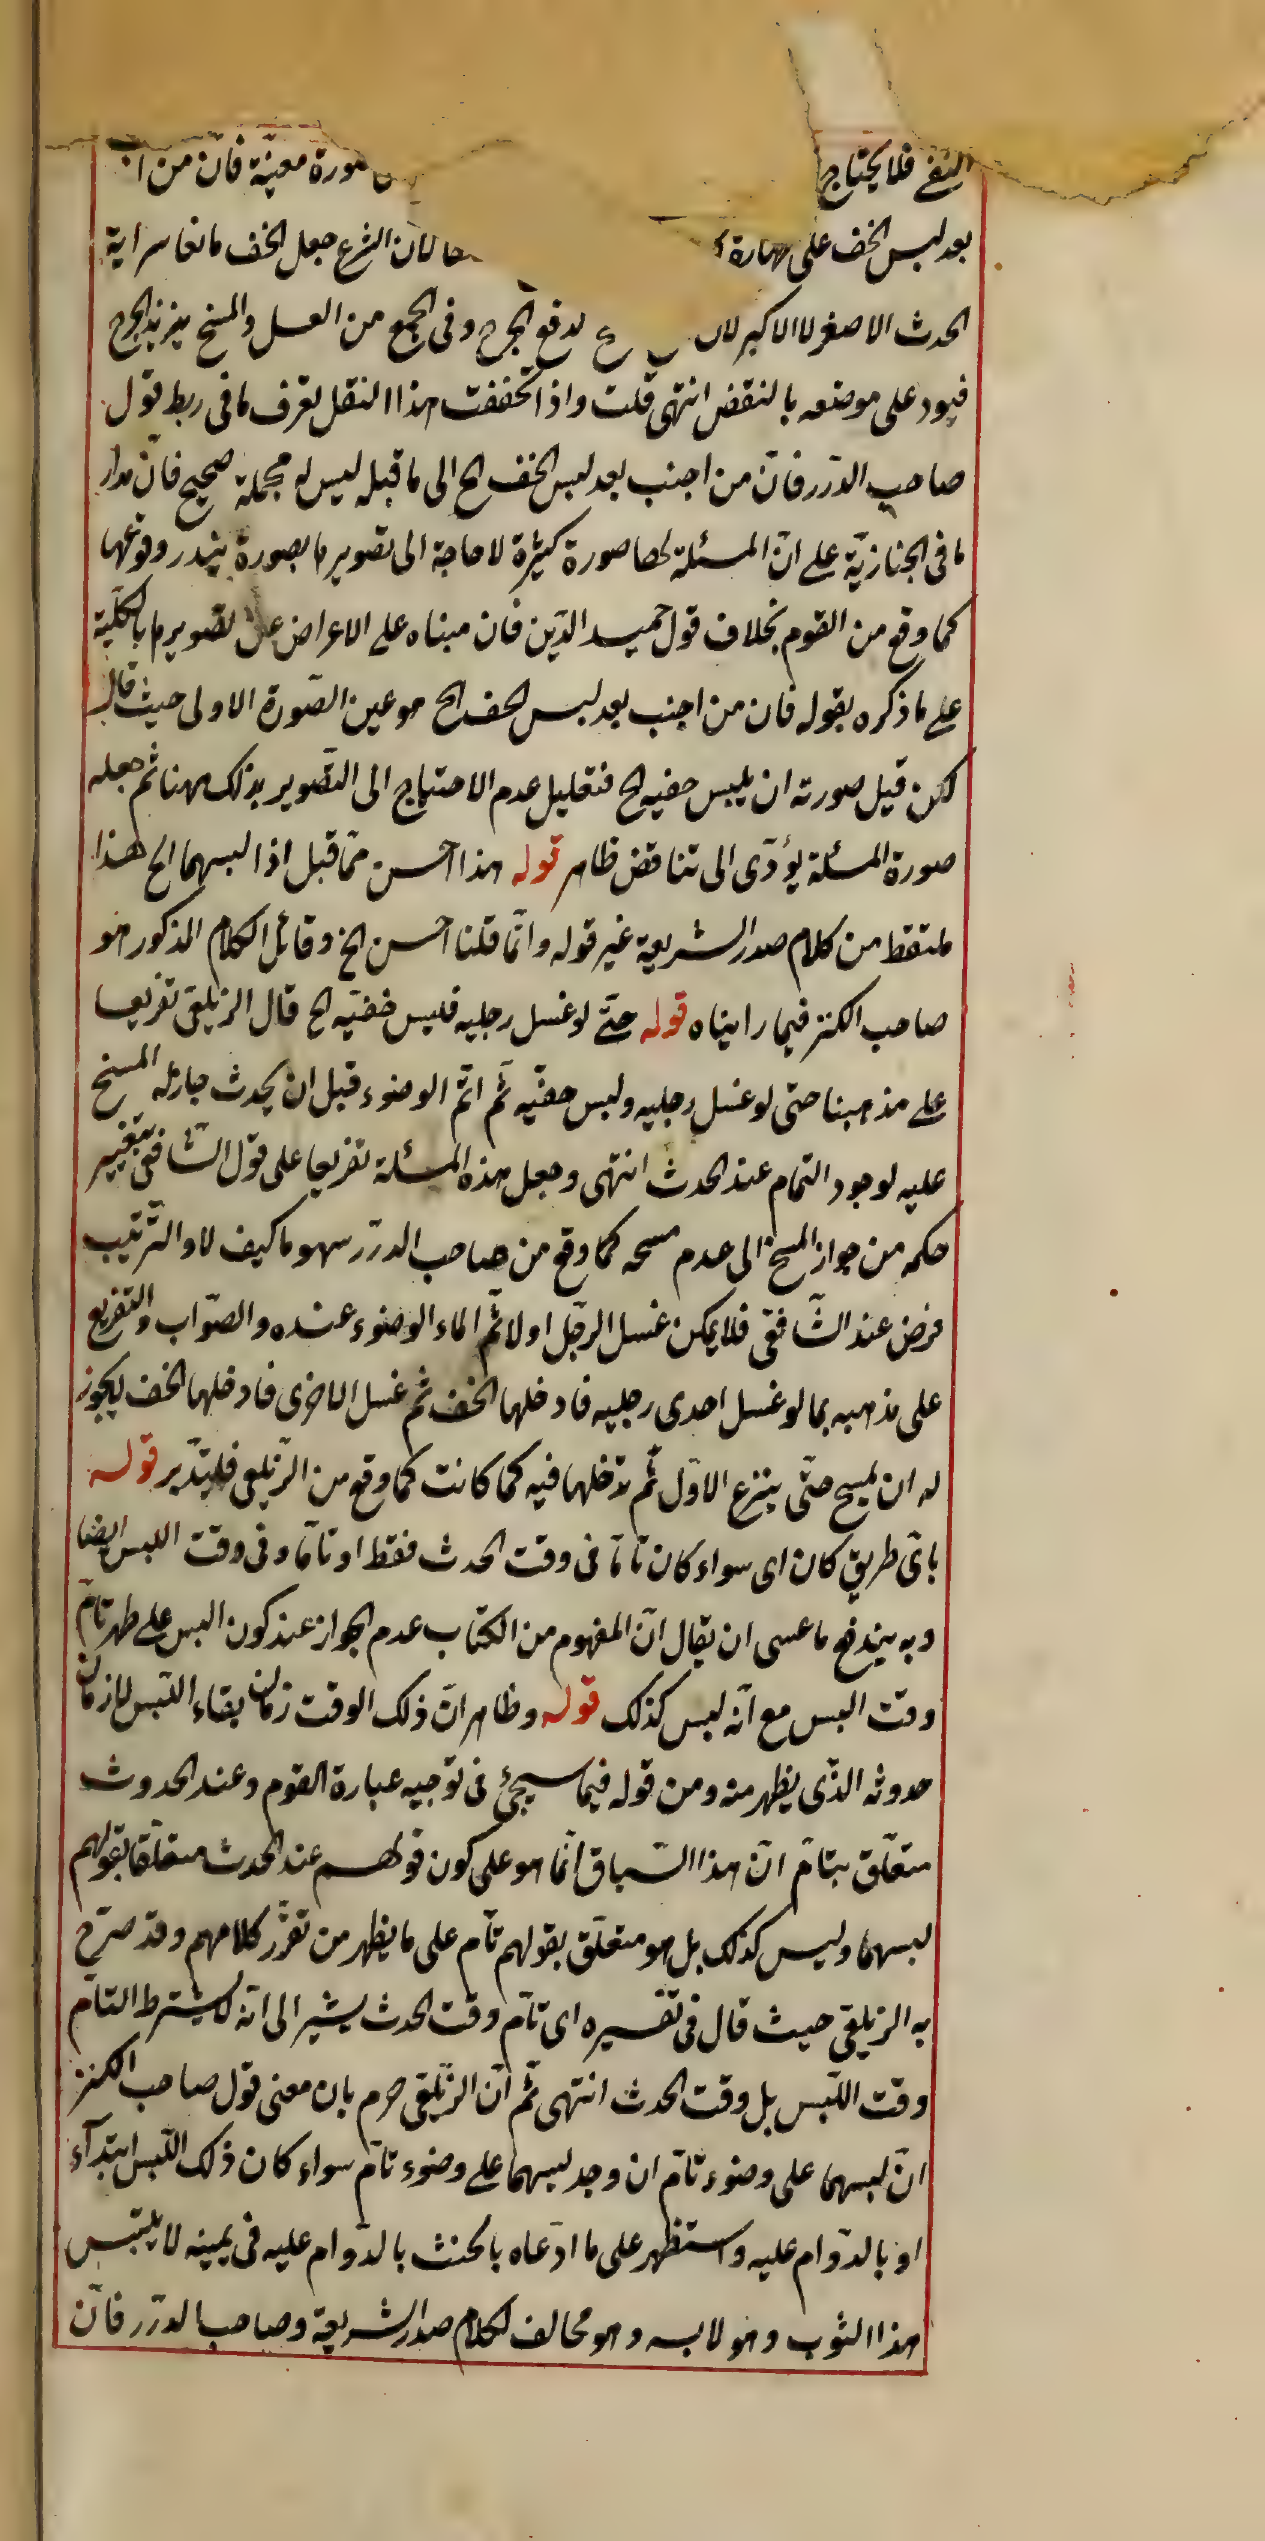 النفي فلا يحتاج صورة معينة فان من ا
بعد لبس الخف على طهارة لان الشرع جعل الخف مانعا سراية
الحدث الاصغر لا الاكبر لان لدفع الحرج وفى الجمع من الغسل والمسح يزيد الحرج
فيعود على موضعه بالنقض انتهى قلت واذا تحققت هذا النقل تعرف ما فى ربط قول
صاحب الدرر فان من اجنب بعد لبس الخف الخ الى ما قبله ليس له محملة صحيح فان مدار
ما فى الجنازية على ان المسئلة لها صورة كثيرة لا حاجة الى تصويرها بصورة يندر وقوعها
كما وقع من القوم بخلاف قول حميد الدين فان مبناه على الاعراض عن تصويرها بالكلية
على ما ذكره بقوله فان من اجنب بعد لبس الخف الخ هو عين الصورة الاولى حيث قال
لكن قيل صورته ان يلبس خفيه الخ فتعليل عدم الاحتياج الى التصوير بذلك ههنا ثم جعله
صورة المسئلة يؤدى الى تناقض ظاهر قوله هذا احسن مما قيل اذا لبسهما الخ هذا
ملتقط من كلام صدر الشريعة غير قوله وانما قلنا احسن الخ وقائل الكلام المذكور هو
صاحب الكنز فيما رايناه قوله حتى لو غسل رجليه فلبس خفيه الخ قال الزيلعى تفريعا
على مذهبنا حتى لو غسل رجليه ولبس خفيه ثم اتم الوضوء قبل ان يحدث جاز له المسح
عليه لوجود التمام عند الحدث انتهى وجعل هذه المسئلة تفريعا على قول الشافعى بتغيير
حكمه من جواز المسح الى عدم مسحه كما وقع من صاحب الدرر سهو ما كيف لا والترتيب
فرض عند الشافعى فلا يمكن غسل الرجل اولا ثم اتمام الوضوء عنده والصواب والتفريع
على مذهبه بما لو غسل احدى رجليه فادخلها الخف ثم غسل الاخرى فادخلها الخف لا يجوز
له ان يمسح حتى ينزع الاول ثم يدخلها فيه كما كانت كما وقع من الزيلعى فليتدبر قوله
باى طريق كان اى سواء كان تاما فى وقت الحدث فقط او تاما وفى وقت اللبس ايضا
وبه يندفع ما عسى ان يقال ان المفهوم من الكتاب عدم الجواز عند كون البس على طهر تام
وقت البس مع انه ليس كذلك قوله وظاهر ان ذلك الوقت زمان بقاء اللبس لا زمان
حدوثه الذى يظهر منه ومن قوله فيما سيجئ فى توجيه عبارة القوم وعند الحدوث
متعلق بتام ان هذا السياق انما هو على كون قولهم عند الحدث متعلقا بقولهم
لبسهما وليس كذلك بل هو متعلق بقولهم تام على ما يظهر من تقرر كلامهم وقد صرح
به الزيلعى حيث قال فى تفسيره اى تام وقت الحدث يشير الى انه لا يشترط التام
وقت اللبس بل وقت الحدث انتهى ثم ان الزيلعى جزم بان معنى قول صاحب الكنز
ان لبسهما على وضوء تام ان وجد لبسهما على وضوء تام سواء كان ذلك اللبس ابتداء
او بالدوام عليه واستظهر على ما ادعاه بالحنث بالدوام عليه فى يمينه لا يلبس
هذا الثوب وهو لابسه وهو مخالف لكلام صدر الشريعة وصاحب الدرر فان